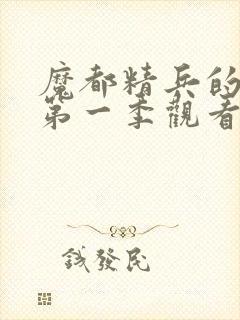 魔都精兵的
第一季觀看
錢發民